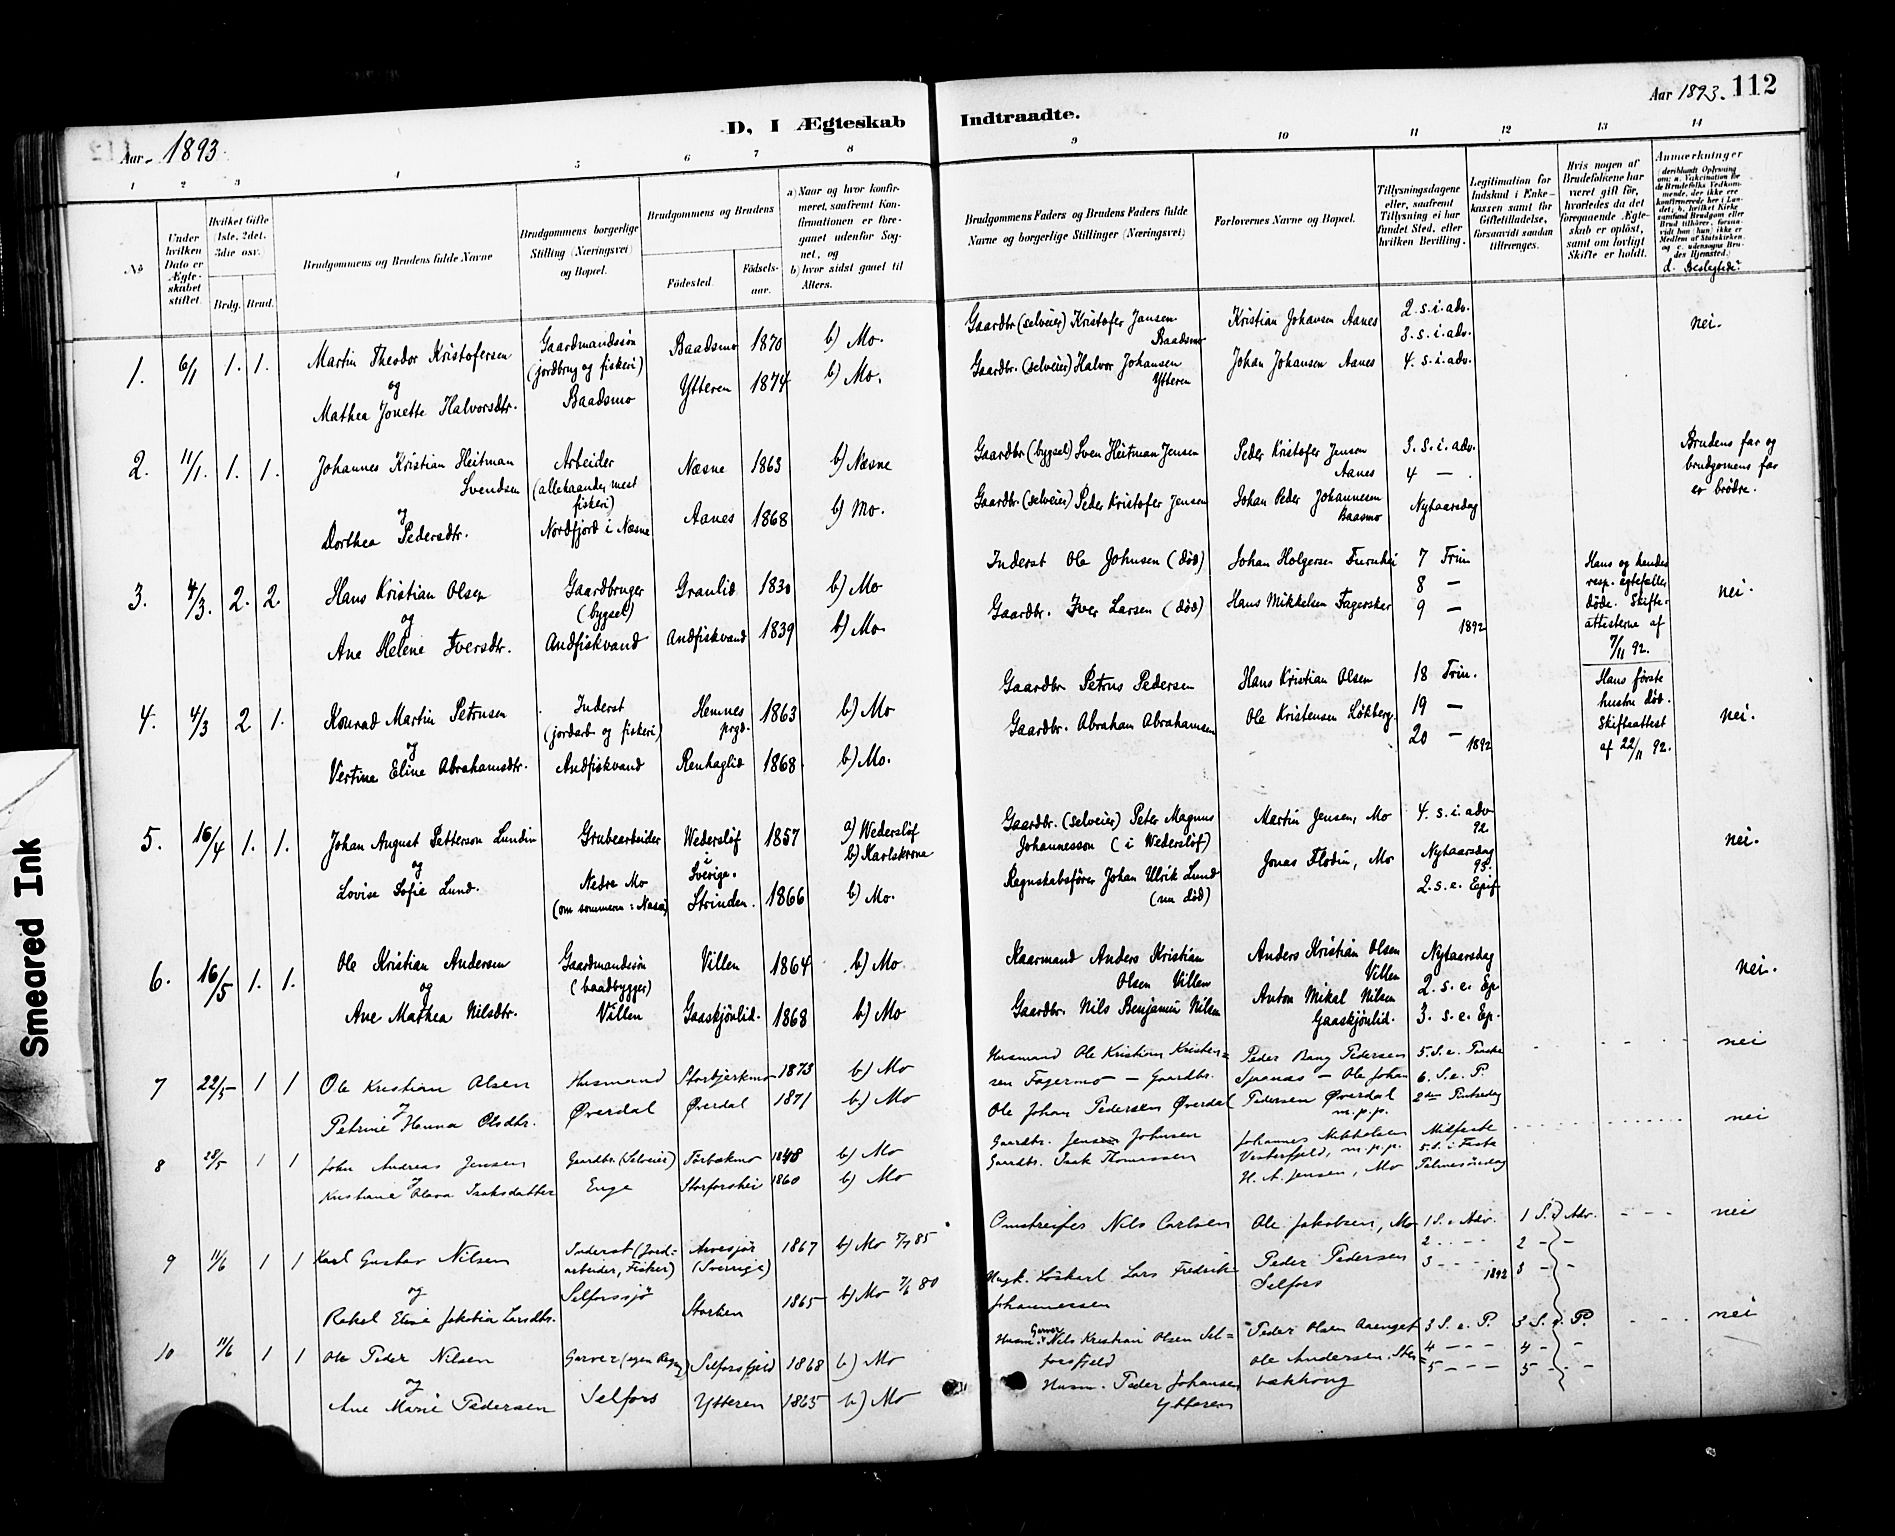 Aar 1893
D, I Ægteskab Indtraadte.
Aar 1893. 112
1 2 3 4 5 6 7 8 9 10 11 12 13 14
No
Under hvilken Dato er Ægteskabet stiftet.
Hvilket Gifte (1ste, 2det, 3die osv.
Brdg. Brud.
Brudgommens og Brudens fulde Navne
Brudgommens borgerlige Stilling (Næringsvei) og Bopæl.
Brudgommens og Brudens
Fødested.
Fødselsaar.
a) Naar og hvor konfirmeret, saafremt Konfirmationen er foregaaet udenfor Sognet, og
b) hvor sidst gaaet til Alters.
Brudgommens Faders og Brudens Faders fulde Navne og borgerlige Stillinger (Næringsvei)
Forlovernes Navne og Bopæl.
Tillysningsdagene eller, saafremt Tillysning ei har fundet Sted, efter hvilken Bevilling.
Legitimation for Indskud i Enkekassen samt for Giftetilladelse, forsaavidt saadan tiltrænges.
Hvis nogen af Brudefolkene har været gift før, hvorledes da det foregaaende Ægteskab er opløst, samt om lovligt Skifte er holdt.
Anmærkninger (deriblandt Oplysning om: a. Vaccination for de Brudefolks Vedkommende, der ikke ere konfirmerede her i Landet; b. hvilket Kirkesamfund Brudgom eller Brud tilhører, forsaavidt han (hun) ikke er Medlem af Statskirken, og c. udensogns Brudes Hjemsted.)
d. Beslegtede?
1. 6/1 1. 1.
Martin Theodor Kristofersen
og
Mathea Jonette Halvorsdtr.
Gaardmandssön
(jordbrug og fiskeri)
Baadsmo
Baadsmo 1870 b) Mo.
Ytteren 1874 b) Mo.
Gaardbr (selveier) Kristofer Jensen
Baadsmo
Gaardbr. (selveier) Halvor Johansen
Ytteren
Kristian Johansen Aanes
Johan Johansen Aanes
2. s. i. adv.
3. s. i. adv.
4. s. i. adv.
nei.
2. 11/1. 1. 1.
Johannes Kristian Heitman
Svendsen
og
Dorthea Pedersdtr.
Arbeider
(allehaande, mest
fiskeri)
Nordfjord i Næsne
Næsne 1863 b) Næsne
Aanes 1868 b) Mo.
Gaardbr (bygsel) Sven Heitman Jensen
Gaardbr. (selveier) Peder Kristofer Jensen
Peder Kristofer Jensen
Aanes
Johan Peder Johannesen
Baasmo
3. s. i. adv.
4 — .
Nytaarsdag
Brudens far og
brudgomens far
er brödre.
3. 4/3. 2. 2.
Hans Kristian Olsen
og
Ane Helene Iversdtr.
Gaardbruger
(bygsel)
Andfiskvand
Granlid 1830 b) Mo
Andfiskvand 1839 b) Mo.
Inderst Ole Johnsen (död)
Gaardbr. Iver Larsen (död)
Johan Holgersen Furuhei
Hans Mikkelsen Fagersker
7 Trin
8 —
9 —
1892
Hans og hendes
resp. egtefæller
döde. Skifte-
attesterne af
7/11 92.
nei.
4. 4/3 2 1.
Konrad Martin Petrusen
og
Vertine Eline Abrahamsdtr.
Inderst
(jordarb. og fiskeri)
Andfiskvand
Hemnes
prgd. 1863 b) Mo
Renhaglid 1868 b) Mo.
Gaardbr Petrus Pedersen
Gaardbr. Abraham Abrahamsen
Hans Kristian Olsen
Ole Kristensen Lökberg.
18 Trin.
19 —
20 — 1892
Hans förste
hustru död.
Skifteattest
af 22/11 92.
nei.
5. 16/4 1. 1.
Johan August Petterson Lundin
og
Lovise Sofie Lund.
Grubearbeider
Nedre Mo
(om sommeren: Nasa)
Wederslöf
i
Sverige. 1857
a) Wederslöf
b) Karlskrona
Strinden. 1866 b) Mo.
Gaardbr. (selveier) Peter Magnus
Johannesson (i Wederslöf)
Regnskabsförer Johan Ulrik Lund
(nu död)
Martin Jensen, Mo
Jonas Flodin, Mo
4. s. i. adv
92
Nytaarsdag
93.
2. s. e. Epif
nei.
6. 16/5 1. 1.
Ole Kristian Andersen
og
Ane Mathea Nilsdtr.
Gaardmandssön
(baadbygger)
Villen
Villen 1864 b) Mo
Gaaskjönlid. 1868 b) Mo
Kaarmand Anders Kristian
Olsen Villen
Gaardbr. Nils Benjamin Nilsen
Anders Kristian Olsen
Villen
Anton Mikal Nilsen
Gaaskjönlid.
Nytaarsdag
2. s. e. Ep
3. s. e. Ep.
nei.
7 22/5 1 1
Ole Kristian Olsen
og
Petrine Hanna Olsdtr.
Husmand
Øverdal
Storbjerkmo 1873 b) Mo
Øverdal 1871 b) Mo
Husmand Ole Kristian Kristen=
sen Fagermo — Gaardbr.
Ole Johan Pedersen Øverdal
Peder Bang Pedersen
Sjaanes — Ole Johan
Pedersen Øverdal
m.p.p.
5. S. e. Paaske
6. S. e. P.
2den Pintsedag
nei
8 28/5 1 1
John Andreas Jensen
og
Kristiane Olava Isaksdatter
Gaardbr. (Selveier)
Enge
Forbækmo 1848 b) Mo
Storforshei 1860 b) Mo
Gaardbr. Jens Johnsen
Gaardbr. Isak Thomassen
Johannes Mikkelsen
Vesterfjeld, m.p.p.
H. A. Jensen, Mo
Midfaste
5. S. i Faste
Palmesöndag
nei
9 11/6 1 1
Karl Gustav Nilsen
og
Rakel Eline Jakobia Larsdtr.
Inderst (Jord=
arbeider, Fisker)
Selforssjö
Arvesjör
(Sverrige) 1867 b) Mo 7/7 85
Storlien 1865 b) Mo 7/6 80
Omstreifer Nils Carlsen
Johannessen
Ole Jakobsen, Mo
Peder Pedersen
Selfors
1 S. i Adv.
2 - - -
3 - - - 1892
1 S. i Adv.
2 - -
3 - -
nei
10 11/6 1 1
Ole Peder Nilsen
og
Ane Marie Pedersen
Garver (egen Regn.)
Selfors
Selforsfjeld 1868 b) Mo
Ytteren 1865 b) Mo
Husm. Garver Nils Kristian Olsen Sel=
forsfjeld
Husm. Peder Johansen
Ytteren
Peder Olsen Aaenget
Ole Andersen
3 S. e. P.
4 - - -
5 - - -
3 S. e. P.
4 - -
5 - -
nei
Smeared Ink